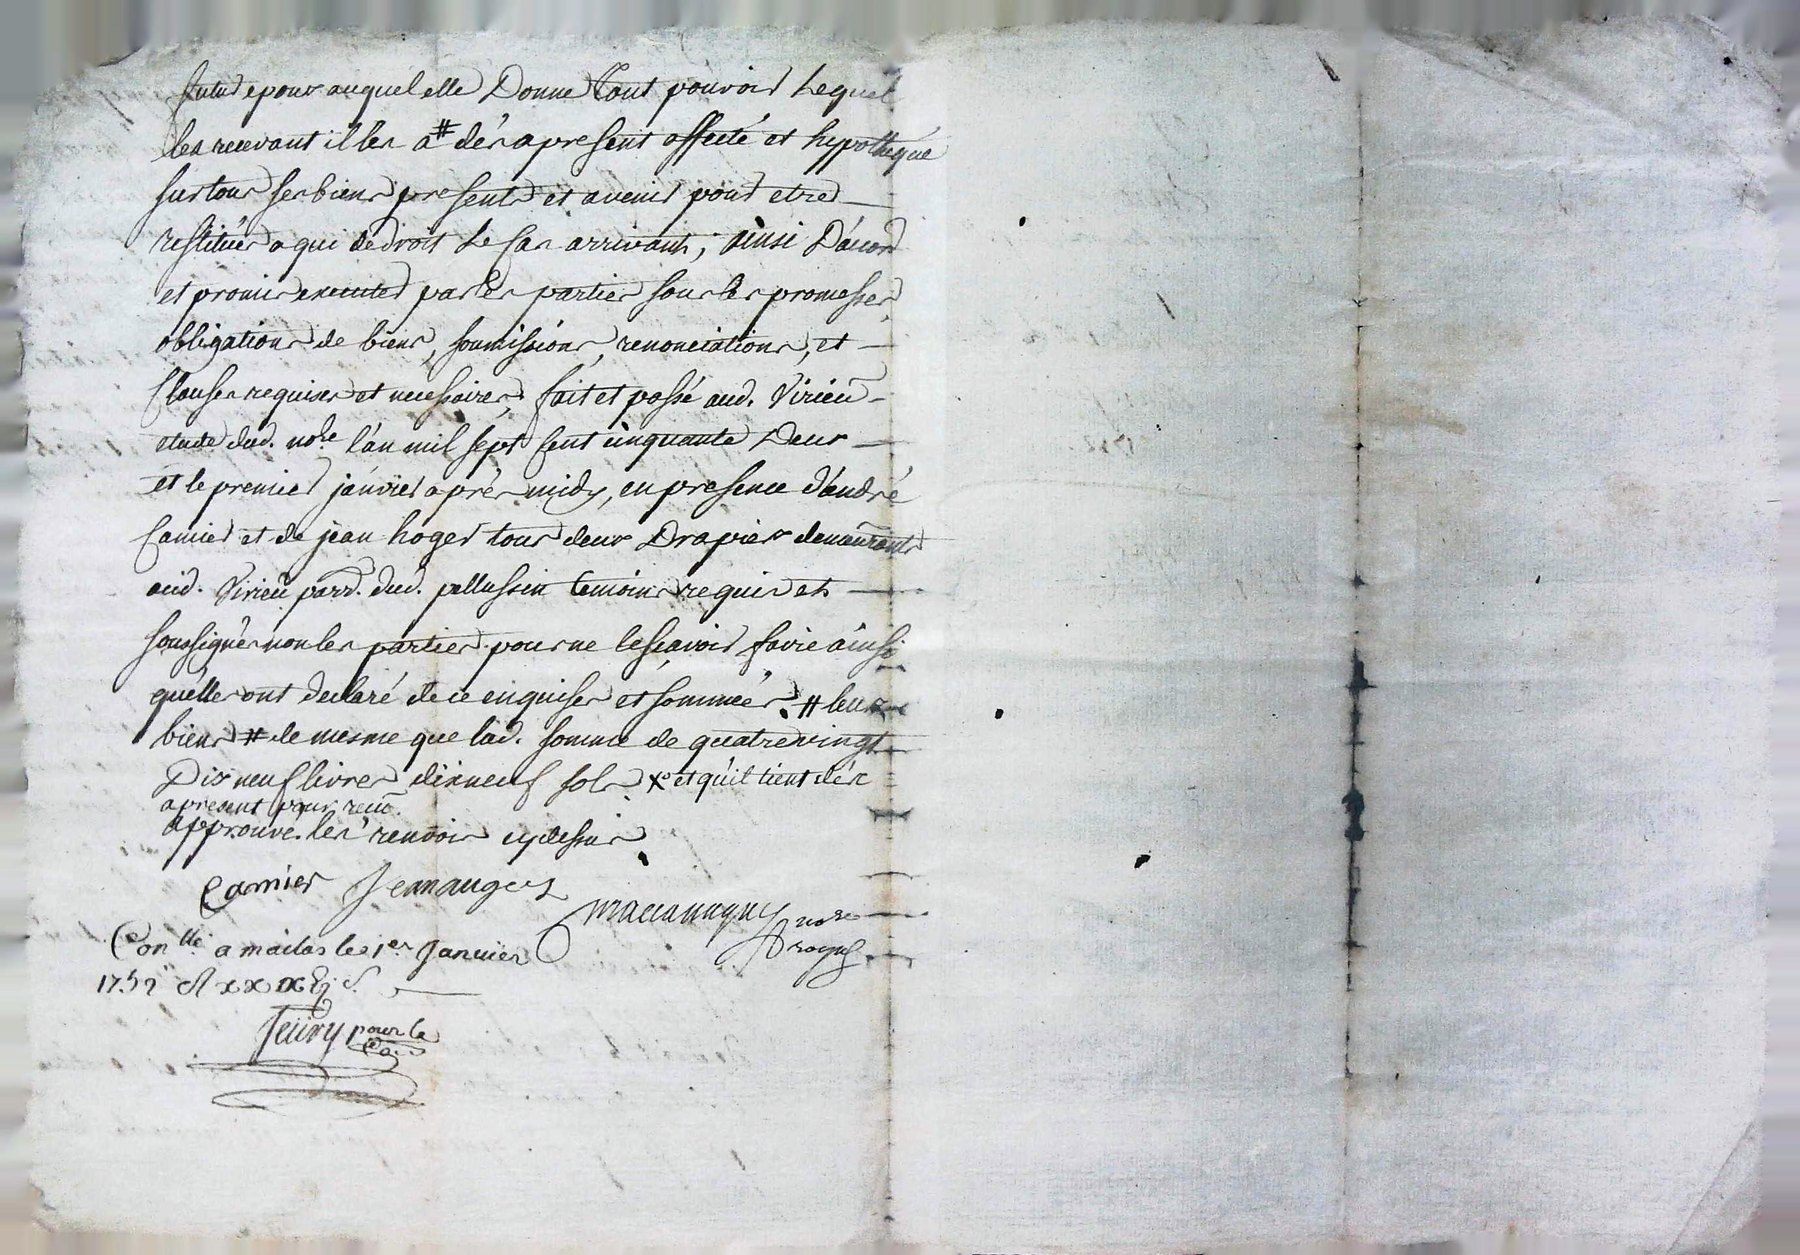 futur epoux auquel elle Donne tout pouvoir Lequel
les recevant il les a # dés apresent affecté et hypothequé
sur tous ses biens presents et avenir pour etre
restitués a qui de droit Le cas arrivant, ainsi D'acord
et promis executer par les parties sous les promesses
obligations de biens, soumissions, renonciations, et
Clauses requises et necessaires, fait et passé aud. Virieu
etude dud. nore l'an mil sept cent cinquante Deux
et le premier janvier aprés midy, en presence d'andré
Camier et de jean hoger tous deux Drapiers demeurants
aud. Virieu parr. dud. pellussin temoins requis et
soussignés non les parties pour ne le sçavoir faire ainsi
qu'elles ont declaré de ce enquises et sommées # leurs
biens # de mesme que lad. somme de quatrevingt
Dix neuf livres dixneuf sols x et qu'il tient dés
apresent pour recue.
approuve les renvois cy dessus
Camier Jean auger
nore
royal
Con.lle a malas le 1er Janvier
1752
pour le